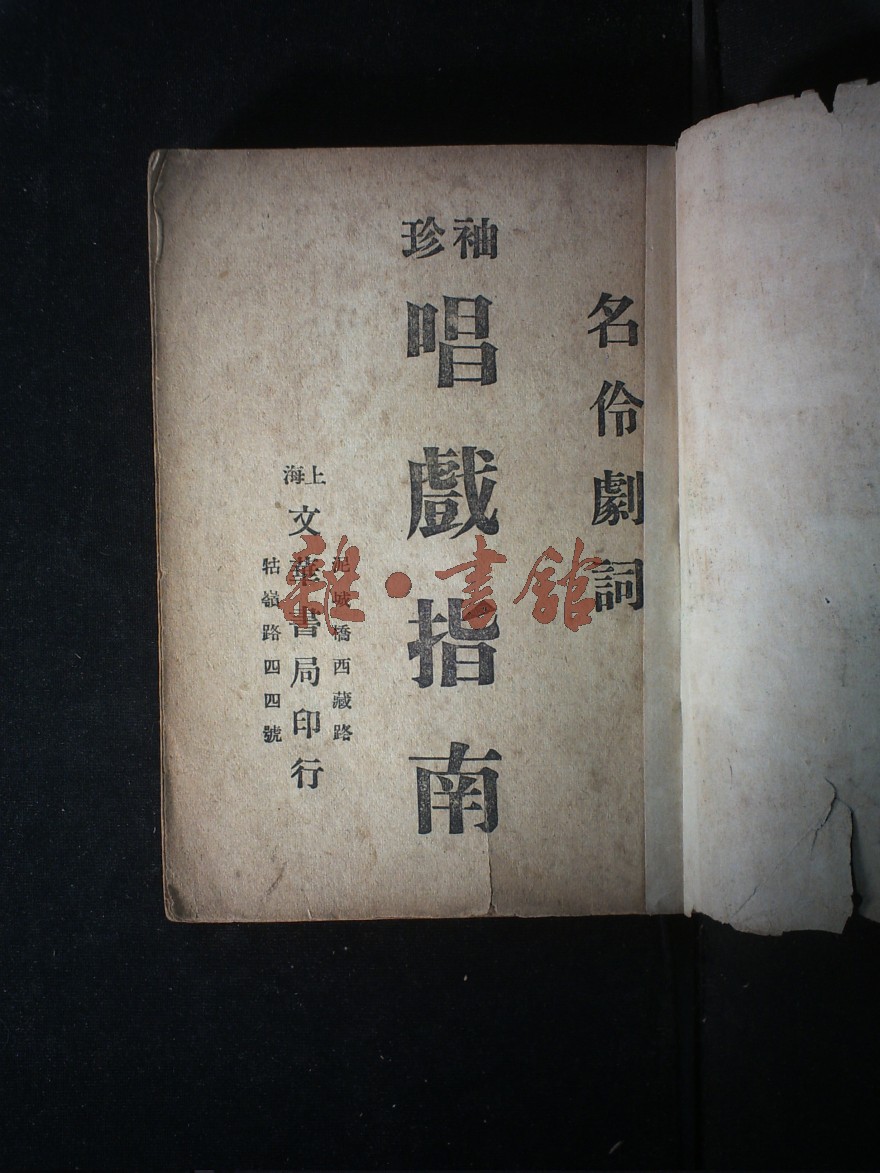 名伶劇詞
袖珍
唱戲指南
泥城橋西藏路
上海
文華書局印行
牯嶺路四四號
雜·書館